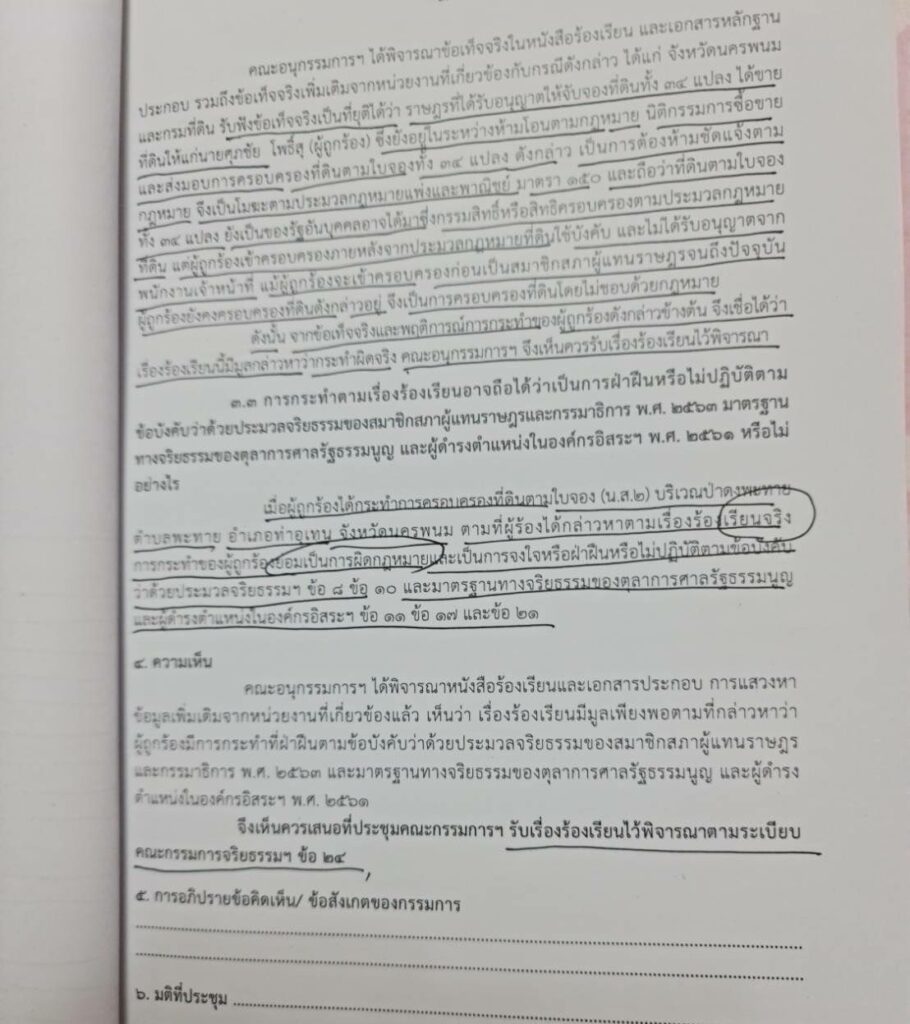 คณะอนุกรรมการฯ ได้พิจารณาข้อเท็จจริงในหนังสือร้องเรียน และเอกสารหลักฐาน
ประกอบ รวมถึงข้อเท็จจริงเพิ่มเติมจากหน่วยงานที่เกี่ยวข้องกับกรณีดังกล่าว ได้แก่ จังหวัดนครพนม
และกรมที่ดิน รับฟังข้อเท็จจริงเป็นที่ยุติได้ว่า ราษฎรที่ได้รับอนุญาตให้จับจองที่ดินทั้ง ๓๔ แปลง ได้ขาย
ที่ดินให้แก่นายศุภชัย โพธิ์สุ (ผู้ถูกร้อง) ซึ่งยังอยู่ในระหว่างห้ามโอนตามกฎหมาย นิติกรรมการซื้อขาย
และส่งมอบการครอบครองที่ดินตามใบจองทั้ง ๓๔ แปลง ดังกล่าว เป็นการต้องห้ามชัดแจ้งตาม
กฎหมาย จึงเป็นโมฆะตามประมวลกฎหมายแพ่งและพาณิชย์ มาตรา ๑๕๐ และถือว่าที่ดินตามใบจอง
ทั้ง ๓๔ แปลง ยังเป็นของรัฐอันบุคคลอาจได้มาซึ่งกรรมสิทธิ์หรือสิทธิครอบครองตามประมวลกฎหมาย
ที่ดิน แต่ผู้ถูกร้องเข้าครอบครองภายหลังจากประมวลกฎหมายที่ดินใช้บังคับ และไม่ได้รับอนุญาตจาก
พนักงานเจ้าหน้าที่ แม้ผู้ถูกร้องจะเข้าครอบครองก่อนเป็นสมาชิกสภาผู้แทนราษฎรจนถึงปัจจุบัน
ผู้ถูกร้องยังคงครอบครองที่ดินดังกล่าวอยู่ จึงเป็นการครอบครองที่ดินโดยไม่ชอบด้วยกฎหมาย
ดังนั้น จากข้อเท็จจริงและพฤติการณ์การกระทำของผู้ถูกร้องดังกล่าวข้างต้น จึงเชื่อได้ว่า
เรื่องร้องเรียนนี้มีมูลกล่าวหาว่ากระทำผิดจริง คณะอนุกรรมการฯ จึงเห็นควรรับเรื่องร้องเรียนไว้พิจารณา
๓.๓ การกระทำตามเรื่องร้องเรียนอาจถือได้ว่าเป็นการฝ่าฝืนหรือไม่ปฏิบัติตาม
ข้อบังคับว่าด้วยประมวลจริยธรรมของสมาชิกสภาผู้แทนราษฎรและกรรมาธิการ พ.ศ. ๒๕๖๓ มาตรฐาน
ทางจริยธรรมของตุลาการศาลรัฐธรรมนูญ และผู้ดำรงตำแหน่งในองค์กรอิสระฯ พ.ศ. ๒๕๖๑ หรือไม่
อย่างไร
เมื่อผู้ถูกร้องได้กระทำการครอบครองที่ดินตามใบจอง (น.ส.๒) บริเวณป่าดงพะทาย
ตำบลพะทาย อำเภอท่าอุเทน จังหวัดนครพนม ตามที่ผู้ร้องได้กล่าวหาตามเรื่องร้องเรียนจริง
การกระทำของผู้ถูกร้องย่อมเป็นการผิดกฎหมายและเป็นการจงใจหรือฝ่าฝืนหรือไม่ปฏิบัติตามข้อบังคับ
ว่าด้วยประมวลจริยธรรมฯ ข้อ ๘ ข้อ ๑๐ และมาตรฐานทางจริยธรรมของตุลาการศาลรัฐธรรมนูญ
และผู้ดำรงตำแหน่งในองค์กรอิสระฯ ข้อ ๑๑ ข้อ ๑๗ และข้อ ๒๑
๔. ความเห็น
คณะอนุกรรมการฯ ได้พิจารณาหนังสือร้องเรียนและเอกสารประกอบ การแสวงหา
ข้อมูลเพิ่มเติมจากหน่วยงานที่เกี่ยวข้องแล้ว เห็นว่า เรื่องร้องเรียนมีมูลเพียงพอตามที่กล่าวหาว่า
ผู้ถูกร้องมีการกระทำที่ฝ่าฝืนตามข้อบังคับว่าด้วยประมวลจริยธรรมของสมาชิกสภาผู้แทนราษฎร
และกรรมาธิการ พ.ศ. ๒๕๖๓ และมาตรฐานทางจริยธรรมของตุลาการศาลรัฐธรรมนูญ และผู้ดำรง
ตำแหน่งในองค์กรอิสระฯ พ.ศ. ๒๕๖๑
จึงเห็นควรเสนอที่ประชุมคณะกรรมการฯ รับเรื่องร้องเรียนไว้พิจารณาตามระเบียบ
คณะกรรมการจริยธรรมฯ ข้อ ๒๔
๕. การอภิปรายข้อคิดเห็น/ ข้อสังเกตของกรรมการ
๖. มติที่ประชุม